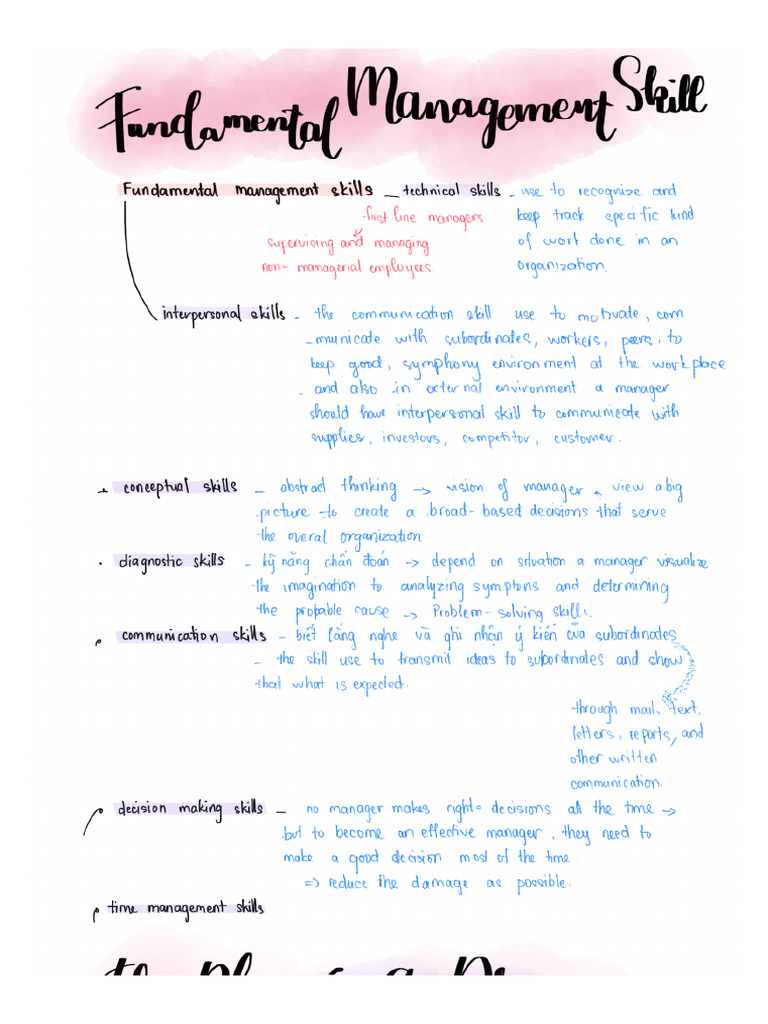 Fundamental Management Skill
Fundamental management skills – technical skills – use to recognize and
keep track specific kind
of work done in an
organization.
first line managers
supervising and managing
non-managerial employees.
interpersonal skills – the communication skill use to motivate, com
-municate with subordinates, workers, peers, to
keep good, symphony environment at the workplace
. and also in external environment a manager
should have interpersonal skill to communicate with
supplies, investors, competitor, customer.
conceptual skills – abstract thinking → vision of manager, view a big
picture to create a broad-based decisions that serve
the overal organization.
. diagnostic skills – kỹ năng chẩn đoán → depend on situation a manager visualize
the imagination to analyzing symptons and determining
the probable cause → Problem-solving skills.
communication skills – biết lắng nghe và ghi nhận ý kiến của subordinates
– the skill use to transmit ideas to subordinates and show
that what is expected.
through mail, text,
letters, reports, and
other written
communication.
decision making skills – no manager makes right decisions all the time →
but to become an effective manager, they need to
make a good decision most of the time.
=> reduce the damage as possible.
time management skills